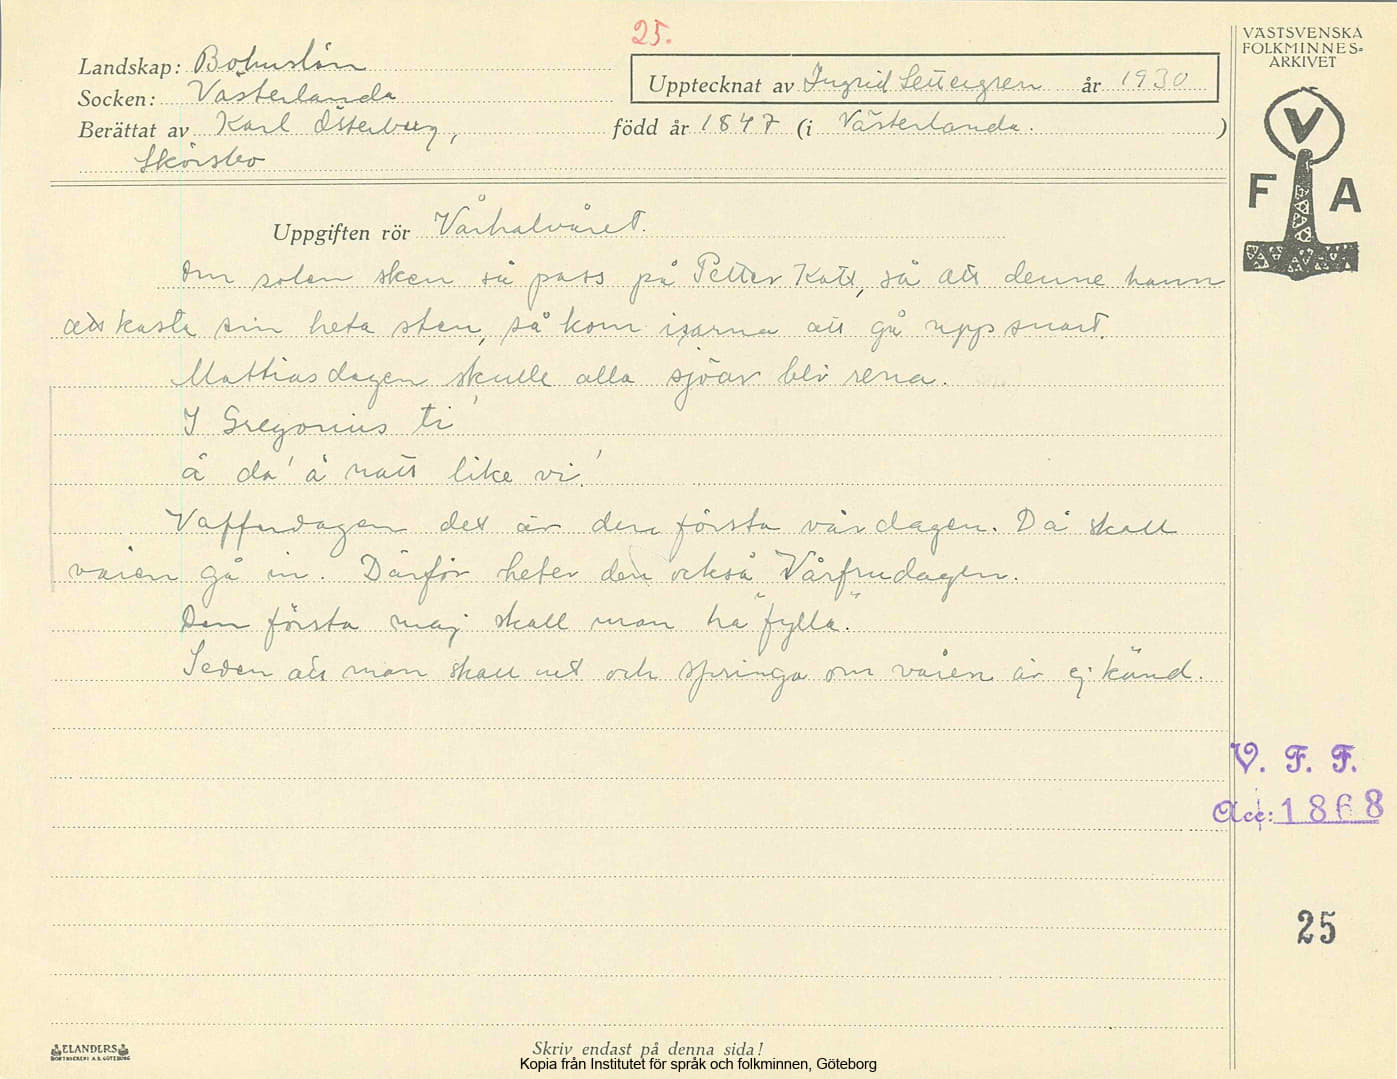 25.
VÄSTSVENSKA
FOLKMINNES-
ARKIVET
Landskap: Bohuslän
Upptecknat av Ingrid Settergren år 1930
Socken: Västerlanda
Berättat av Karl Österberg, född år 1847 (i Västerlanda. )
Skörsbo
V
F A
Uppgiften rör Vårhalvåret.
Om solen sken så pass på Petter Katt, så att denne hann
att kasta sin heta sten, så kom isarna att gå upp snart.
Mattiasdagen skulle alla sjöar bli rena.
I Gregorius ti'
å da' å natt like vi'.
Vaffrudagen det är den första vårdagen. Då skall
våren gå in. Därför heter den också Vårfrudagen.
Den första maj skall man ha "fylla".
Seden att man skall ut och springa om våren är ej känd.
V. F. F.
Acc: 1868
25
ELANDERS
BOKTRYCKERI A.B. GÖTEBORG
Skriv endast på denna sida!
Kopia från Institutet för språk och folkminnen, Göteborg